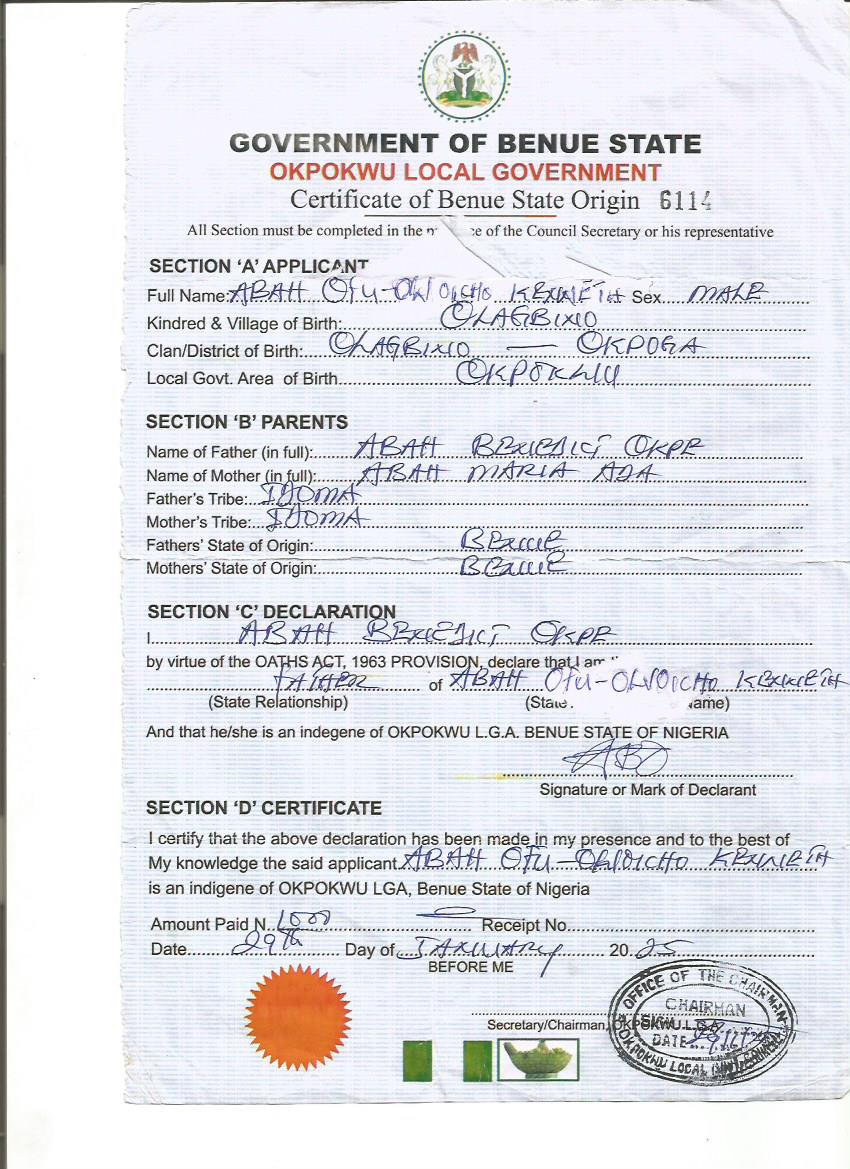 GOVERNMENT OF BENUE STATE
OKPOKWU LOCAL GOVERNMENT
Certificate of Benue State Origin 6114
All Section must be completed in the of the Council Secretary or his representative
SECTION 'A' APPLICANT
Full Name: ABAH OFU-OKWOICHO KENNETH Sex MALE
Kindred & Village of Birth: OLAGBIXIO
Clan/District of Birth: OLAGBIXIO — OKPOGA
Local Govt. Area of Birth OKPOKWU
SECTION 'B' PARENTS
Name of Father (in full): ABAH BENEDICT OKPE
Name of Mother (in full): ABAH MARIA ADA
Father's Tribe: IDOMA
Mother's Tribe: IDOMA
Fathers' State of Origin: BENUE
Mothers' State of Origin: BENUE
SECTION 'C' DECLARATION
I ABAH BENEDICT OKPE
by virtue of the OATHS ACT, 1963 PROVISION, declare that I am
FATHER of ABAH KENNETH
(State Relationship) (State ame)
And that he/she is an indegene of OKPOKWU L.G.A. BENUE STATE OF NIGERIA
Signature or Mark of Declarant
SECTION 'D' CERTIFICATE
I certify that the above declaration has been made in my presence and to the best of
My knowledge the said applicant ABAH KENNETH
is an indigene of OKPOKWU LGA, Benue State of Nigeria
Amount Paid N 1000 Receipt No
Date 29th Day of JANUARY 20 25
BEFORE ME
Secretary/Chairman, OKPOKWU L.G.A
OFFICE OF THE CHAIRMAN
CHAIRMAN
SIGN
DATE
OKPOKWU LOCAL GOVERNMENT